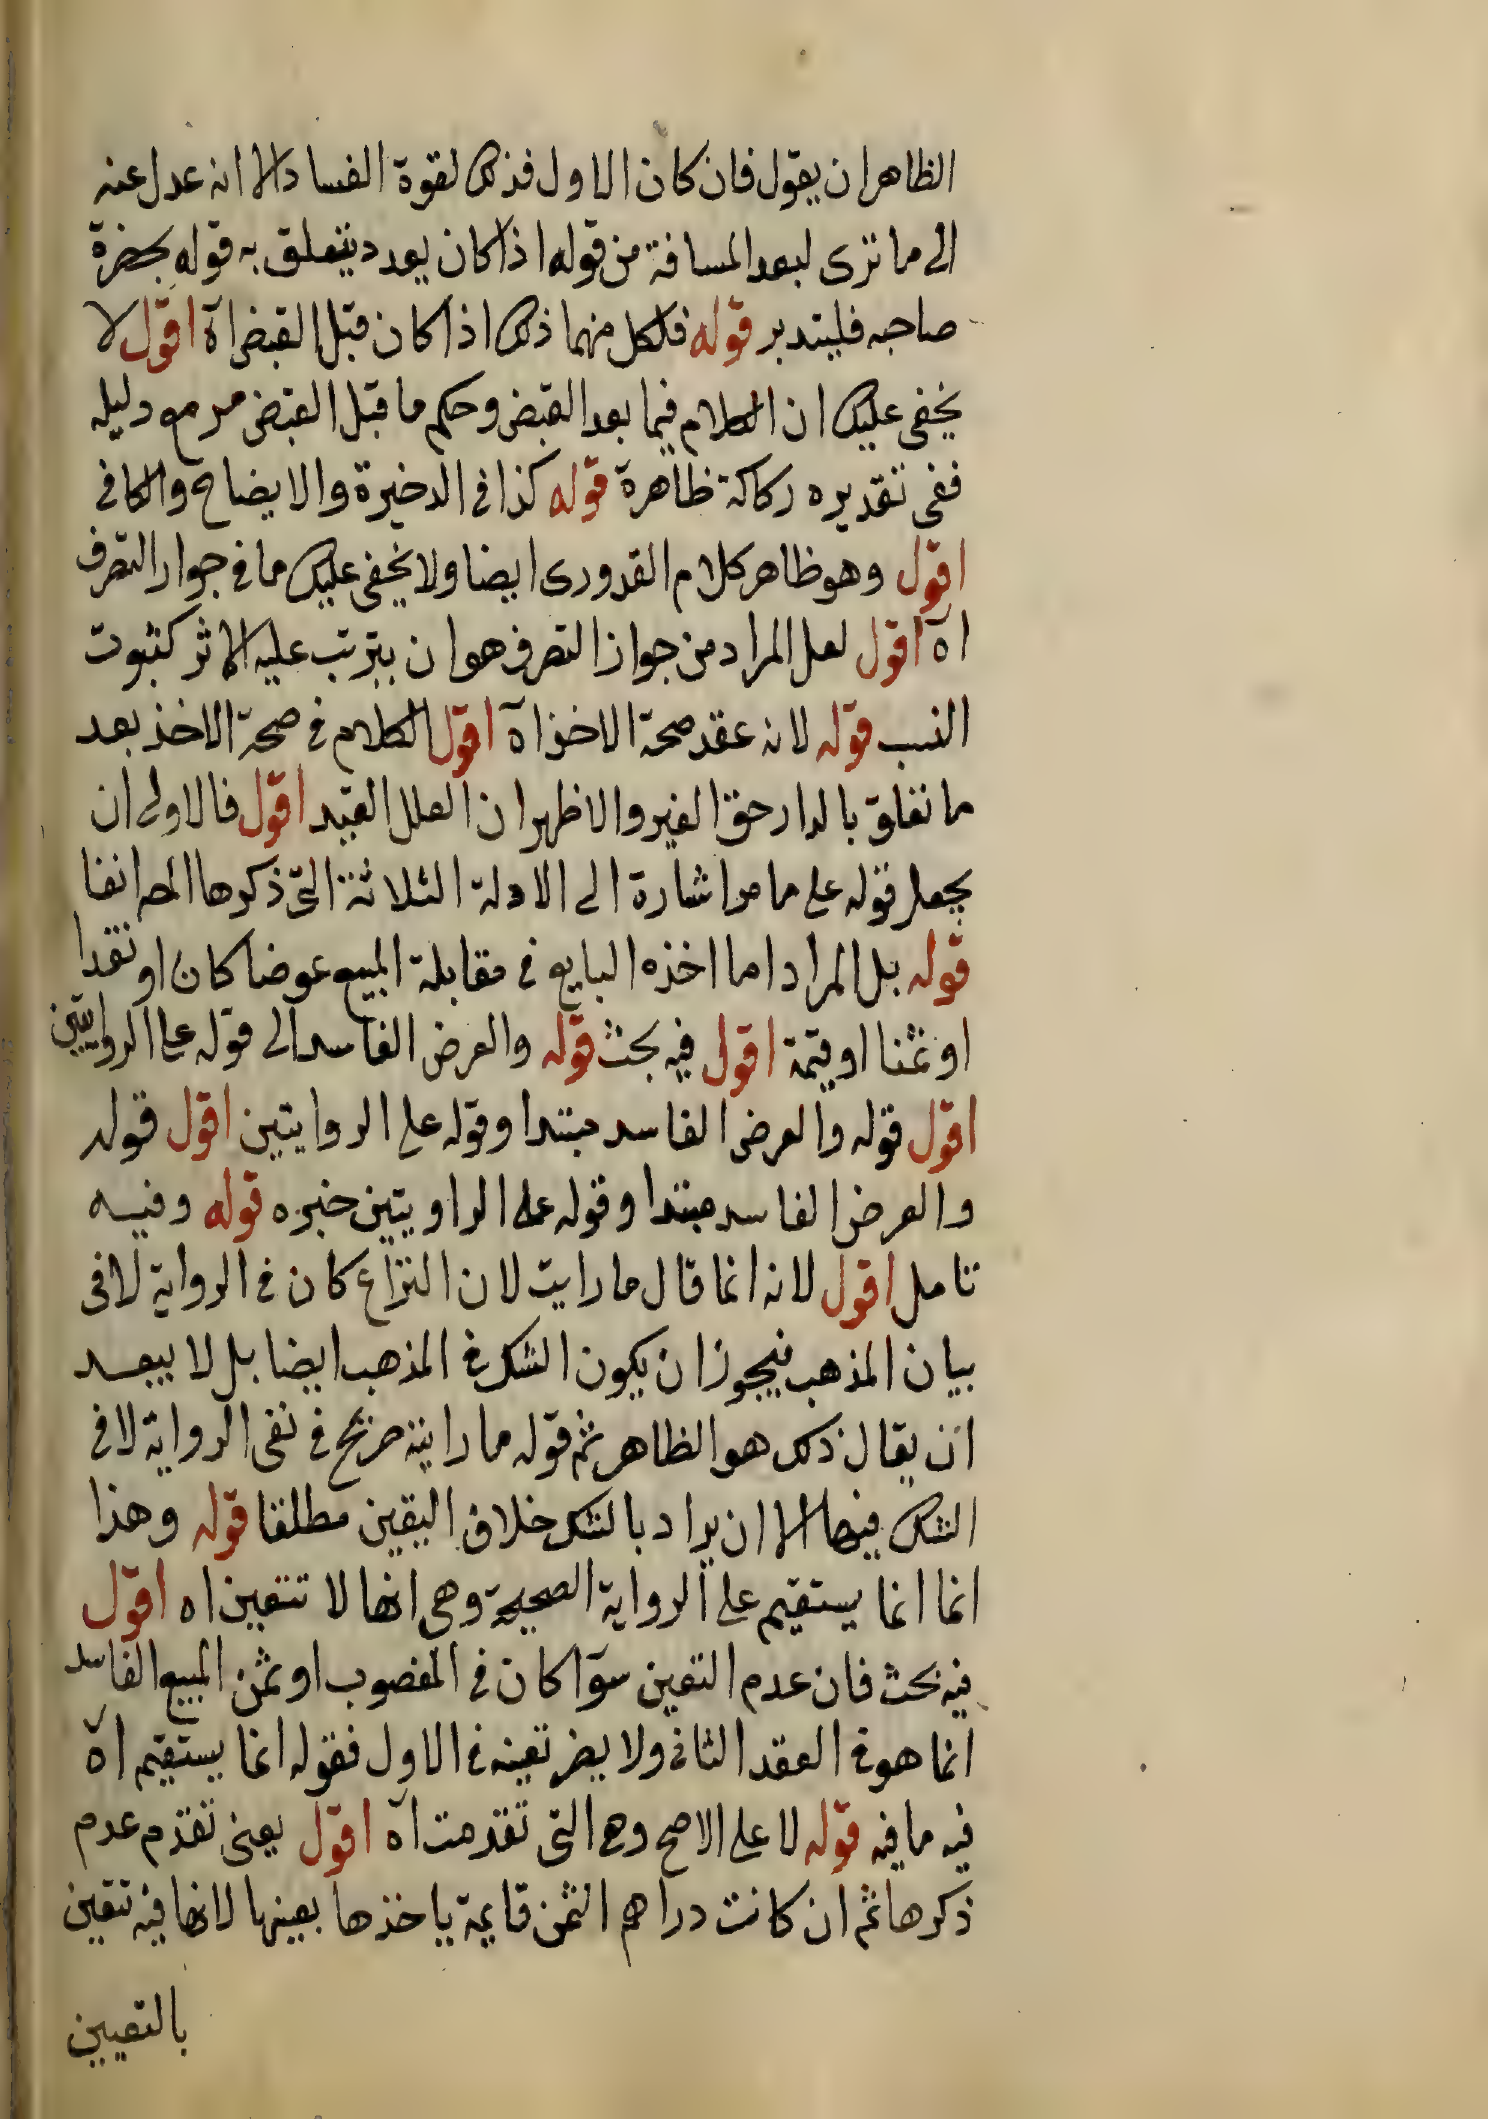 الظاهر ان يقول فان كان الاول فذلك لقوة الفساد الا انه عدل عنه
الى ما ترى لبعد المسافة من قوله اذا كان يعد دينعلق به قوله بحضرة
صاحبه فليتدبر قوله فلكل منهما ذلك اذا كان قبل القبض اه اقول لا
يخفى عليك ان الكلام فيما بعد القبض وحكم ما قبل القبض مر مع دليله
ففى تقديره ركاكة ظاهرة قوله كذا فى الدخيرة والايضاح والكافى
اقول وهو ظاهر كلام القدورى ايضا ولا يخفى عليك ما فى جواز التصرف
اه اقول لعل المراد من جواز التصرف هو ان يترتب عليه الاثر كثبوت
النسب قوله لانه عقد صحة الاخذ اه اقول الكلام فى صحة الاخذ بعد
ما تعلق بالدار حق الغير والاظهر ان العلل القيد اقول فالاولى ان
يجعل قوله على ما مر اشارة الى الادلة الثلاثة التى ذكرها المص انفا
قوله بل المراد اما اخذه البايع فى مقابلة المبيع عوضا كان او نقدا
او ثمنا او قيمة اقول فيه بحث قوله والعرض الفاسد الى قوله على الروايتين
اقول قوله والعرض الفاسد مبتدا وقوله على الروايتين اقول قوله
والعرض الفاسد مبتدا وقوله على الراويتين خبره قوله وفيه
تامل اقول لانه انما قال ما رايت لان النزاع كان فى الرواية لا فى
بيان المذهب فيجوز ان يكون الشك فى المذهب ايضا بل لا يبعد
ان يقال ذلك هو الظاهر ثم قوله ما رايته صريح فى نفى الرواية لا فى
الشك فيها الا ان يراد بالشك خلاف اليقين مطلقا قوله وهذا
انما انما يستقيم على الرواية الصحيحة وهى انها لا تتعين اه اقول
فيه بحث فان عدم التعين سوآ كان فى المغصوب او ثمن المبيع الفاسد
انما هو فى العقد الثانى ولا يضر تعينه فى الاول فقوله انما يستقيم اه
فيه ما فيه قوله لا على الاصح وهى التى تقدمت اه اقول يعنى تقدم عدم
ذكرها ثم ان كانت دراهم الثمن قايمة ياخذها بعينها لانها فيه تتعين
بالتعيين